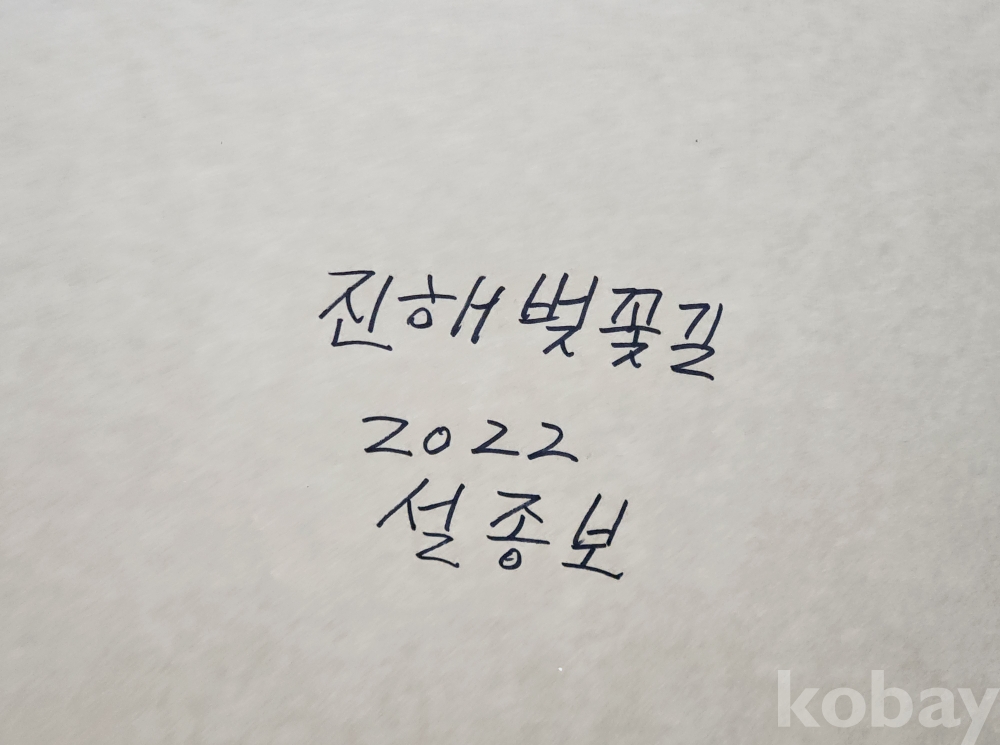 진해 벚꽃길
2022
설종보
kobay